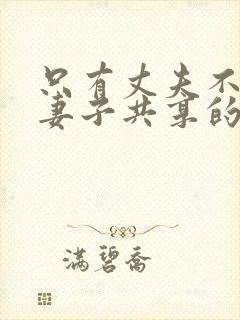 只有丈夫不
妻子共享的
满碧乔